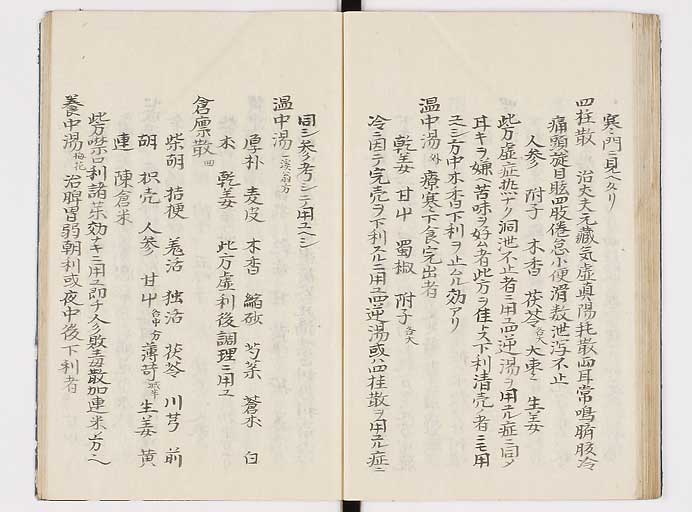 寒ノ門ニ見ヘタリ
四柱散 治丈夫元藏気虚真陽耗散両耳常鳴臍腹冷
痛頭旋目眩四肢倦怠小便滑数泄泻不止
人參 附子 木香 茯苓各大 大棗 生姜
此方虚症熱ナク洞泄不止者ニ用ユ四逆湯ヲ用ル症ニ同シ
耳キヲ嫌苦味ヲ好ム者此方ヲ佳トス下利清売ノ者ニモ用
ユシ方中木香下利ヲ止ムル効アリ
温中湯外 療寒下食完出者
乾姜 甘艸 蜀椒 附子各大
冷ニ因テ完売ヲ下利スルニ用ユ四逆湯或ハ四柱散ヲ用ル症ニ
同シ参考シテ用ユヘシ
温中湯 方
厚朴 麦皮 木香 縮砂 芍薬 蒼朮 白
朮 乾姜 此方虚利後調理ニ用ユ
倉廩散回
柴胡 桔梗 羌活 独活 茯苓 川芎 前
胡 枳売 人參 甘艸各中方 薄荷減半 生姜 黄
連 陳倉米
此方噤口利諸薬効ナキニ用ユ即チ人參敗毒散加連米ノ方ナリ
養中湯梅花 治脾胃弱朝利或夜中後下利者